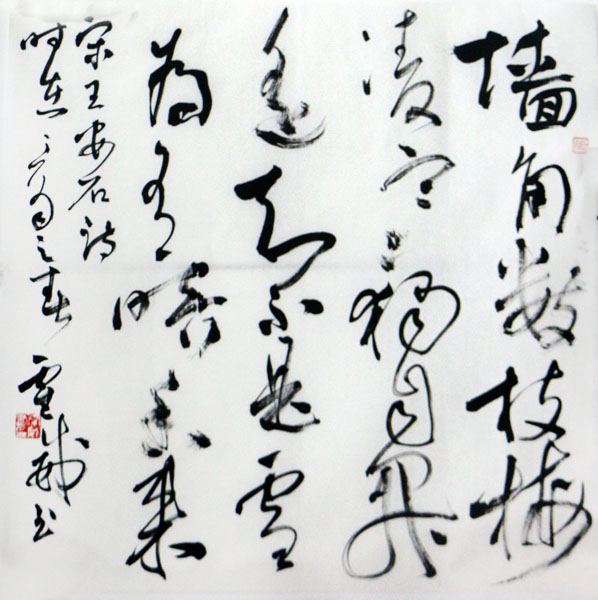 墙角数枝梅
凌寒独自开
遥知不是雪
為有暗香来
宋王安石诗
时在之春